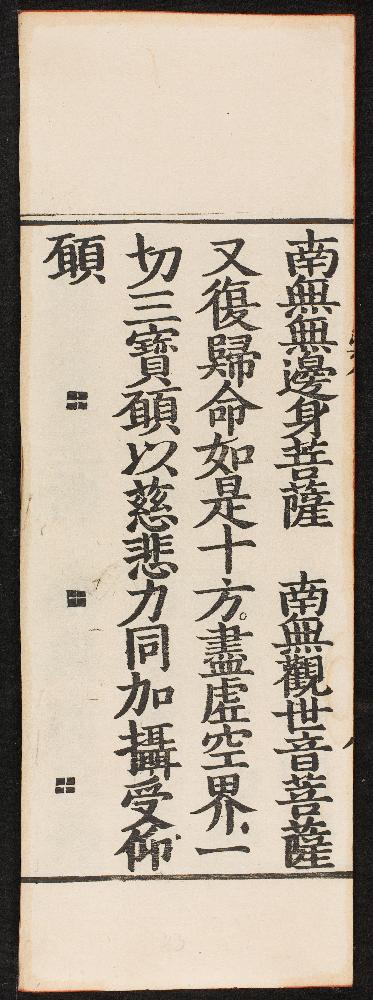 南無無邊身菩薩　南無觀世音菩薩
又復歸命如是十方盡虛空界一
切三寶願以慈悲力同加攝受仰
願